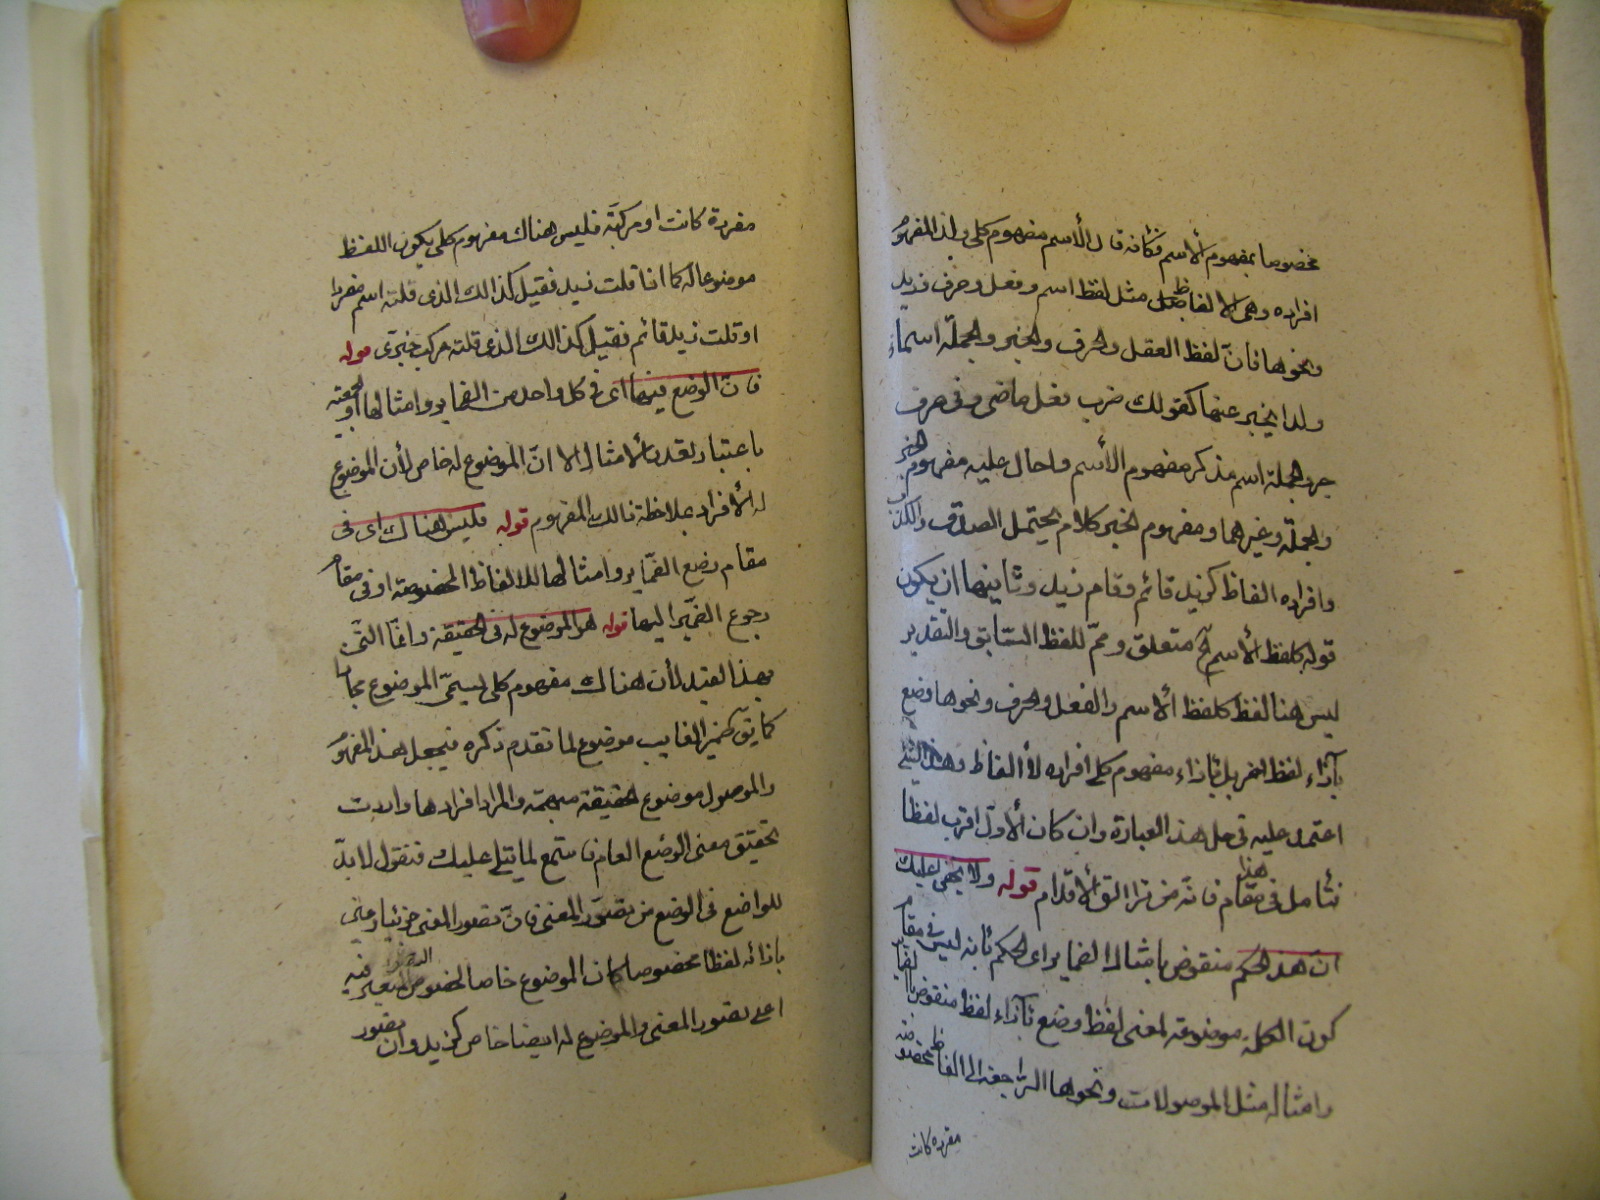 مخصوصا بمفهوم الأسم فكأنه قال الأسم مفهوم كلى ولهذا المفهوم
افراده وهى الالفاظ مثل لفظ اسم وفعل وحرف وزيد
ونحوها فانّ لفظ الفعل والحرف والخبر والجملة اسماء
ولذا يخبر عنها كقولك ضرب فعل ماضى وفى حرف
جر والجملة اسم مذكر مفهوم الأسم واحال عليه مفهوم الخبر
والجملة وغيرهما ومفهوم الخبر كلام يحتمل الصدق والكذب
وافراده الفاظ كزيد قائم وقام زيد وثانيهما ان يكون
قوله كلفظ الأسم آه متعلق ومتمّ للفظ السّابق والتقدير
ليس هنا لفظ كلفظ الأسم والفعل والحرف ونحوها وضع
بآزاء لفظ اخر بل بازاء مفهوم كلى افراده الفاظ وهذا الّذى
اعتمد عليه فى حل هذه العبارة وان كان الأول اقرب لفظا
تأمل فى هذا مقام فانّه من مزالق الأقدام قوله ولا يخفى عليك
انّ هذا الحكم منقوض بامثال الضماير اى الحكم بأنه ليس فى مقام
كون الكلمة موضوعة لمعنى لفظ وضع بآزاء لفظ منقوض بالضماير
وامثاله مثل الموصولات ونحوها الراجعة الى الفاظ مخصوصة
مفرده كانت
مفردة كانت او مركبّة فليس هناك مفهوم كلى يكون اللفظ
موضوعا له كما اذا قلت زيد فقيل كذالك الذى قلته اسم مفردا
او قلت زيد قائم فقيل كذالك الذى قلته مركب خبرى قوله
فانّ الوضع فيهما اى فى كل واحد من الضماير وامثالها او جمعيته
باعتبار تعدد الأمثال الا انّ الموضوع له خاص لأن الموضوع
له الأفراد بملاحظة ذالك المفهوم قوله فليس هناك اى فى
مقام وضع الضّماير وامثالها للالفاظ المخصوصة او فى مقام
رجوع الضّمير اليها قوله هو الموضوع له فى الحقيقة وانّما اتى
بهذا القيد لأن هناك مفهوم كلى يسمّى الموضوع مجازا
كما يق ضمير الغايب موضوع لما تقدم ذكره فيجعل هذا المفهوم
والموصول موضوع لحقيقة مبهمة والمراد افرادها واردت
تحقيق معنى الوضع العام فاستمع لما يتلى عليك فنقول لا بدّ
للواضع فى الوضع من تصوّر المعنى فانّ تصور المعنى جزئيا وعين
بازائه لفظا مخصوصا كان الموضوع خاصا لخصوص التصور المعتبر فيه
اعنى تصور المعنى والموضوع له ايضا خاص كزيد وان تصور